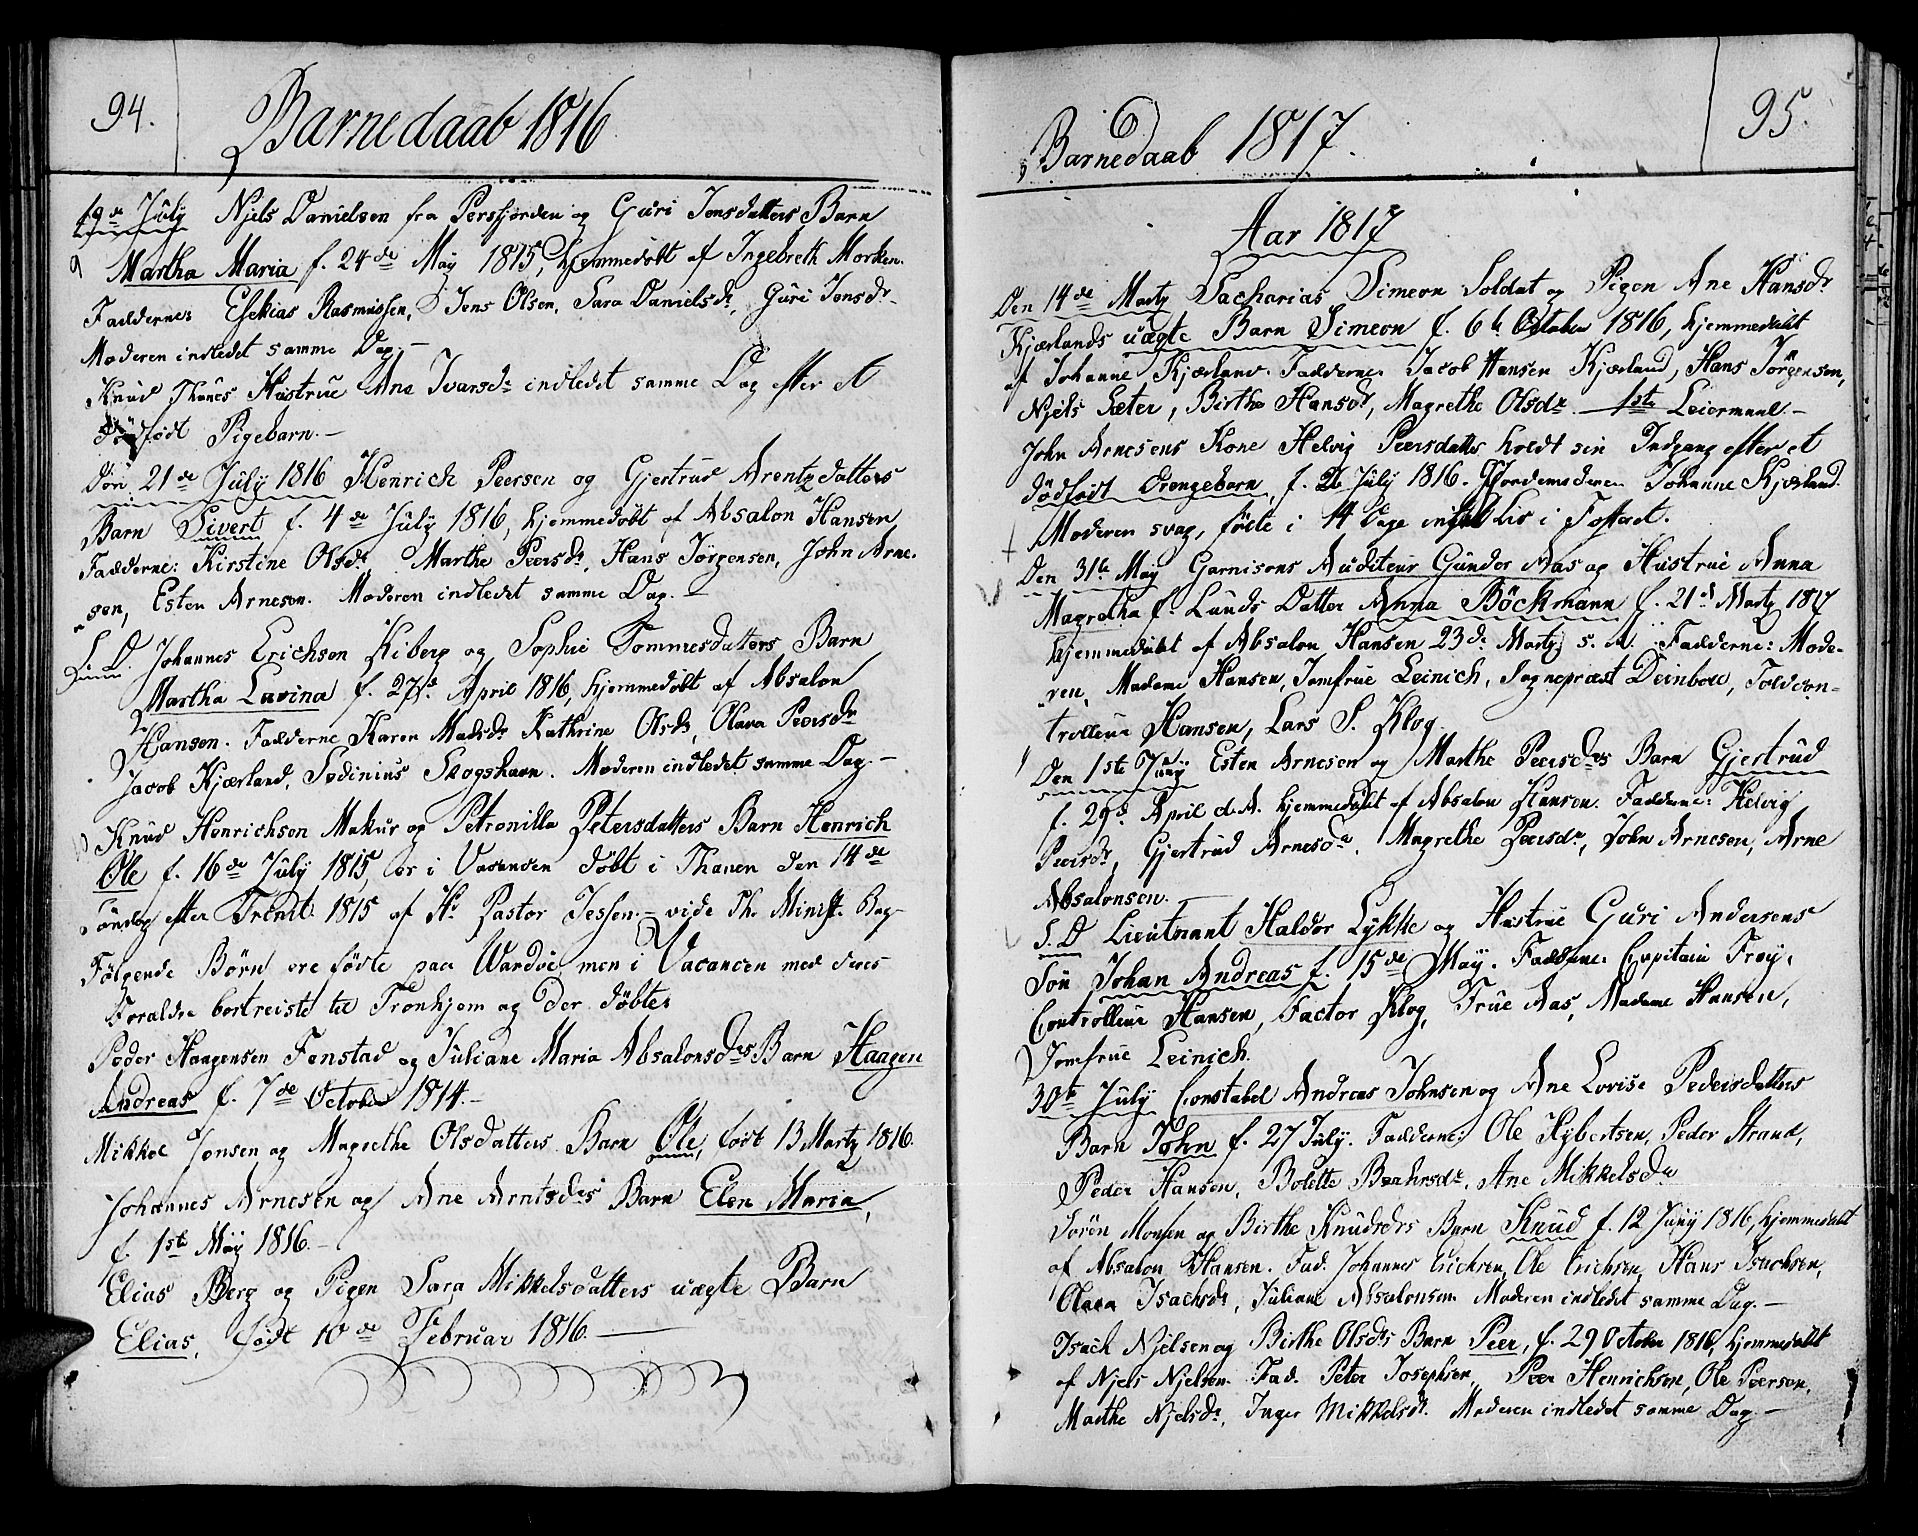 94.
Barnedaab 1816
19de July Njels Danielsen fra Persfjorden og Guri Jensdatters Barn
Martha Maria f. 24de May 1815, hjemmedøbt af Ingebreth Morken.
Fadderne: Esekias Rasmussen, Jens Olsen, Sara Danielsdr, Guri Jensdr
Moderen indledet samme Dag.—
Knud Thanes Hustrue Ane Ivarsdr indledet samme Dag efter et
dødfødt Pigebarn.—
Den 21de July 1816 Henrich Peersen og Gjertrud Arentzdatters
Barn Sivert f. 4de July 1816, hjemmedøbt af Absalon Hansen
Fadderne: Kirstine Olsdr Marthe Peersdr, Hans Jørgensen, John Arne-
sen, Esten Arnesen. Moderen indledet samme Dag.—
S. D. Johannes Erichsen Kiberg og Sophie Tommesdatters Barn
Martha Lavina f. 27de April 1816, hjemmedøbt af Absalon
Hansen. Fadderne Karen Madsdr Kathrine Olsdr, Olava Peersdr
Jacob Kjærland, Sedinius Skogshavn. Moderen indledet samme Dag.—
Knud Henrichsen Makur og Petronilla Petersdatters Barn Henrich
Ole f. 16de July 1815, er i Vacansen døbt i Thanen den 14de
Søndag efter Trinit. 1815 af Hr Pastor Jessen.— vide Th. Minist. Bog
Følgende Børn ere fødte paa Wardøe men i Vacancen med deres
Forældre bortreiste til Tronhjem og der døbte:
Peder Haagensen Fenstad og Juliane Maria Absalonsdrs Barn Haagen
Andreas f. 7de October 1814.—
Mikkel Jensen og Magrethe Olsdatters Barn Ole, født 13 Martz 1816.
Johannes Arnesen og Ane Arntsdrs Barn Elen Maria,
f. 1ste May 1816.—
Elias Berg og Pigen Sara Mikkelsdatters uægte Barn
Elias, født 10de Februar 1816.—
95.
Barnedaab 1817.
Aar 1817
Den 14de Martz Sacharias Simeon Soldat og Pigen Ane Hansdr
Kjærlands uægte Barn Simeon f. 6te October 1816, hjemmedøbt
af Johanne Kjærland. Fadderne: Jacob Hansen Kjærland, Hans Jørgensen,
Njels Sæter, Birthe Hansdr, Magrethe Olsdr.— 1ste Leiermaal—
John Arnesens Kone Helvig Peersdatter holdt sin Indgang efter et
dødfødt Drengebarn, f. July 1816. Gjordemoderen Johanne Kjærland.
Moderen svag, følte i 14 Dage intet Liv i Fosteret.
Den 31te May Garnisons Auditeur Gunder Aas og Hustrue Anna
Magretha f. Lunds Datter Anna Böckmann f. 21de Martz 1817
hjemmedøbt af Absalon Hansen 23de Martz s. A. Fadderne: Mode-
ren, Madame Hansen, Jomfrue Leinich, Sognepræst Deinboll, Toldcon-
trolleur Hansen, Lars S. Klog.
Den 1ste Juny Esten Arnesen og Marthe Peersdrs Barn Gjertrud
f. 29de April d. A. hjemmedøbt af Absalon Hansen. Fadderne: Helvig
Peersdr, Gjertrud Arnesdr, Magrethe Peersdr, John Arnesen, Arne
Absalonsen.
S. D Lieutnant Haldor Lykke og Hustrue Guri Andersens
Søn Johan Andreas f. 15de May. Fadderne: Capitain Frøy,
Controlleur Hansen, Factor Klog, Frue Aas, Madame Hansen,
Jomfrue Leinich.
30te July Constabel Andreas Johnsen og Ane Lovise Pedersdatters
Barn John f. 27 July. Fadderne: Ole Hybertsen, Peder Strand,
Peder Hansen, Bolette Baahrsdr, Ane Mikkelsdr
Søren Monsen og Birthe Knudsdrs Barn Knud f. 12 Juny 1816, hjemmedøbt
af Absalon Hansen. Fad. Johannes Erichsen, Ole Erichsen, Hans Isachsen,
Olava Isachsdr, Juliane Absalonsen. Moderen indledet samme Dag.—
Isach Njelsen og Birthe Olsdrs Barn Peer, f. 29 October 1816, hjemmedøbt
af Njels Njelsen. Fad. Peter Josephsen, Peer Henrichsen, Ole Peersen,
Marthe Njelsdr, Inger Mikkelsdr. Moderen indledet samme Dag.—